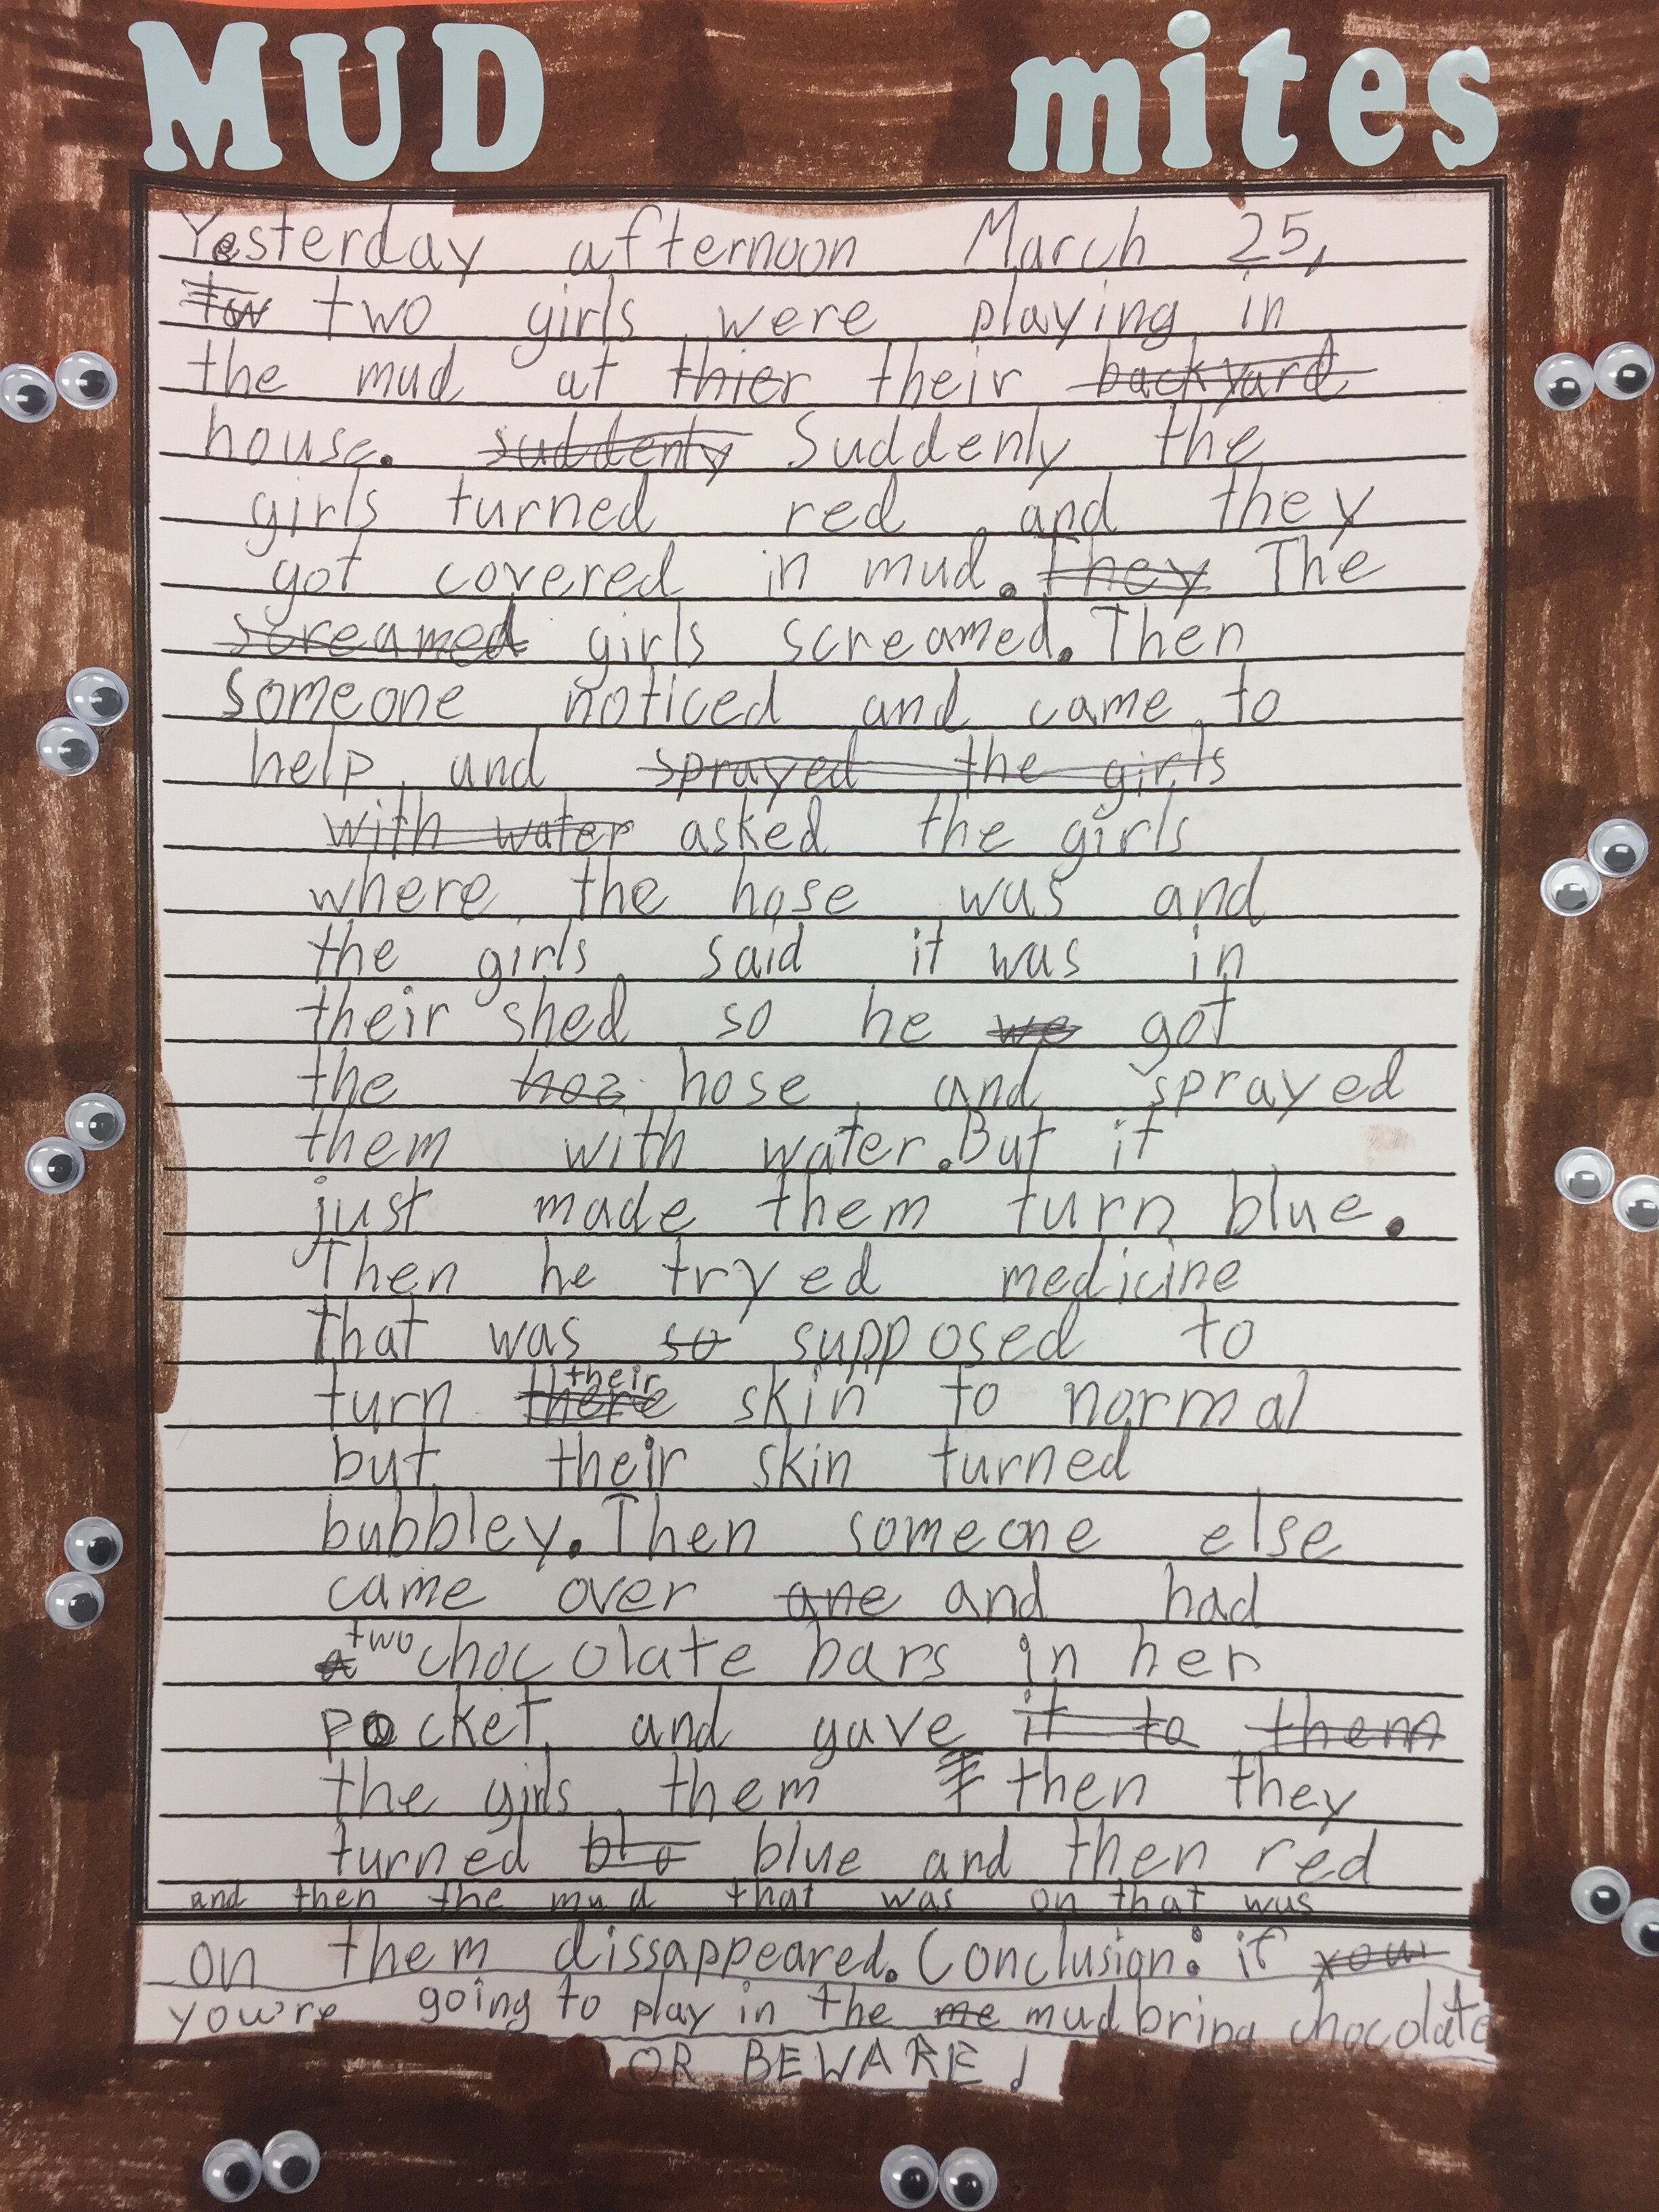 MUD mites
Yesterday afternoon March 25,
tw two girls were playing in
the mud at thier their backyard
house. suddenly Suddenly the
girls turned red and they
got covered in mud. They The
screamed girls screamed. Then
someone noticed and came to
help and sprayed the girls
with water asked the girls
where the hose was and
the girls said it was in
their shed so he we got
the hoz hose and sprayed
them with water. But it
just made them turn blue.
Then he tryed medicine
that was so supposed to
turn there their skin to normal
but their skin turned
bubbley. Then someone else
came over ane and had
a two chocolate bars in her
pocket and gave it to them
the girls them then they
turned blo blue and then red
and then the mud that was on that was
on them dissappeared. Conclusion: if you
you're going to play in the me mud bring chocolate
OR BEWARE!